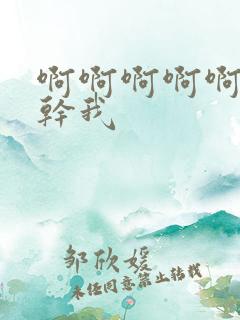 啊啊啊啊啊
幹我
邹欣媛
未经同意禁止转载